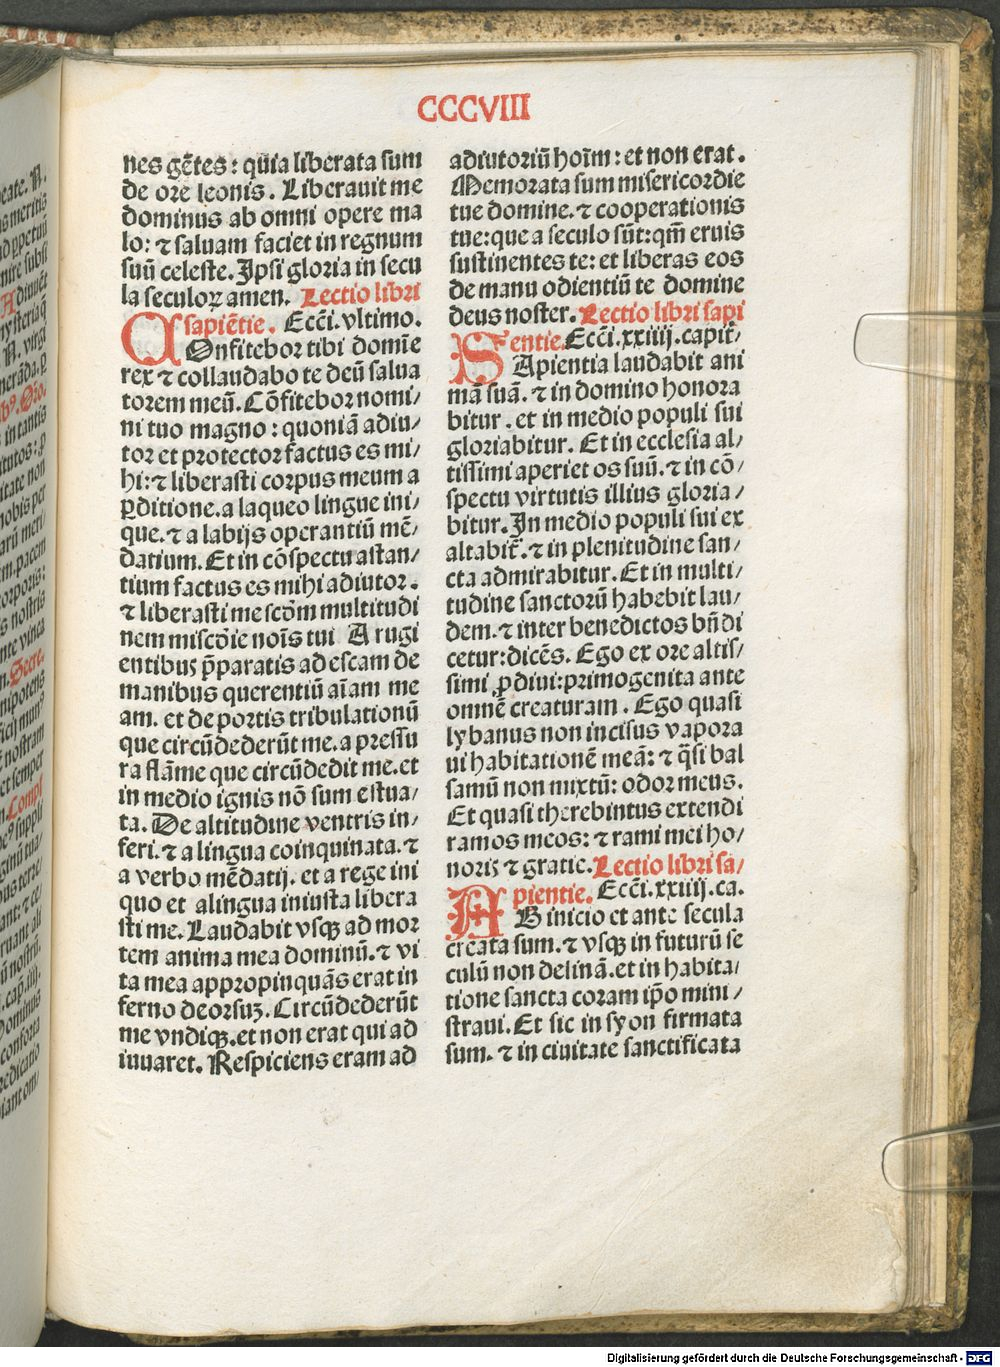 CCCVIII
nes gẽtes : quia liberata sum
de ore leonis . Liberauit me
dominus ab omni opere ma
lo: ⁊ saluam faciet in regnum
suũ celeste. Ipsi gloria in secu
la seculoꝝ amen. Lectio libri
sapiẽtie . Ecci. vltimo.
COnfitebor tibi domĩe
rex ⁊ collaudabo te deũ salua
torem meũ. Cõfitebor nomi/
ni tuo magno : quoniã adiu/
tor et protector factus es mi/
hi: ⁊ liberasti corpus meum a
ꝑditione. a laqueo lingue ini/
que. ⁊ a labijs operantiũ mẽ/
datium. Et in cõspectu astan/
tium factus es mihi adiutor .
⁊ liberasti me scõm multitudi
nem miscõie noĩs tui A rugi
entibus p̃paratis ad escam de
manibus querentiũ aĩam me
am. et de portis tribulationũ
que circũdederũt me. a pressu
ra flãme que circũdedit me. et
in medio ignis nõ sum estua/
ta. De altitudine ventris in/
feri. ⁊ a lingua coinquinata. ⁊
a verbo mẽdatij. et a rege ini
quo et alingua iniusta libera
sti me. Laudabit vsqꝫ ad mor
tem anima mea dominũ. ⁊ vi
ta mea appropinquãs erat in
ferno deorsuꝫ. Circũdederũt
me vndiqꝫ. et non erat qui ad
iuuaret. Respiciens eram ad
adiutoriũ hoĩm : et non erat .
Memorata sum misericordie
tue domine. ⁊ cooperationis
tue: que a seculo sũt: qm̃ eruis
sustinentes te: et liberas eos
de manu odientiũ te domine
deus noster. Lectio libri sapi
entie. Ecci. xxiiij. capit̃
SApientia laudabit ani
mã suã. ⁊ in domino honora
bitur . et in medio populi sui
gloriabitur. Et in ecclesia al/
tissimi aperiet os suũ. ⁊ in cõ/
spectu virtutis illius gloria/
bitur. In medio populi sui ex
altabit̃. ⁊ in plenitudine san/
cta admirabitur. Et in multi/
tudine sanctorũ habebit lau/
dem. ⁊ inter benedictos bñdi
cetur: dicẽs. Ego ex ore altis/
simi ꝓdiui: primogenita ante
omnẽ creaturam . Ego quasi
lybanus non incisus vapora
ui habitationẽ meã: ⁊ q̃si bal
samũ non mixtũ: odor meus.
Et quasi therebintus extendi
ramos meos: ⁊ rami mei ho/
noris ⁊ gratie. Lectio libri sa/
pientie. Ecci. xxiiij. ca.
AB inicio et ante secula
creata sum. ⁊ vsqꝫ in futurũ se
culũ non desinã. et in habita/
tione sancta coram ip̃o mini/
straui. Et sic in syon firmata
sum. ⁊ in ciuitate sanctificata
Digitalisierung gefördert durch die Deutsche Forschungsgemeinschaft - DFG